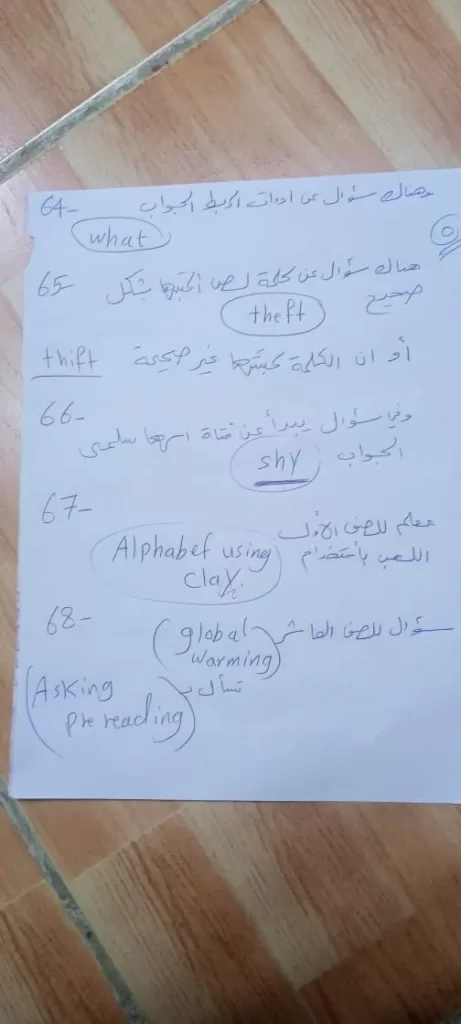 64- وهناك سؤال عن ادوات الربط الجواب
what
٥
65- هناك سؤال عن كلمة لص اكتبها بشكل
صحيح
theft
أو ان الكلمة كتبتها غير صحيحة thift
66- وفي سؤال يبدأ عن فتاة اسمها سلمى
الجواب shy
67- معلم للصف الأول
اللعب بأستخدام Alphabet using
clay.
68- سؤال للصف العاشر (global
warming)
تسأل بـ (Asking
pre reading)